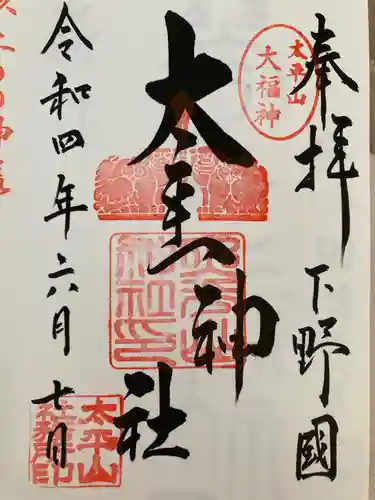 奉拝
下野國
太平山
大福神
太平山神社
令和四年六月七日
太平山
社務所印